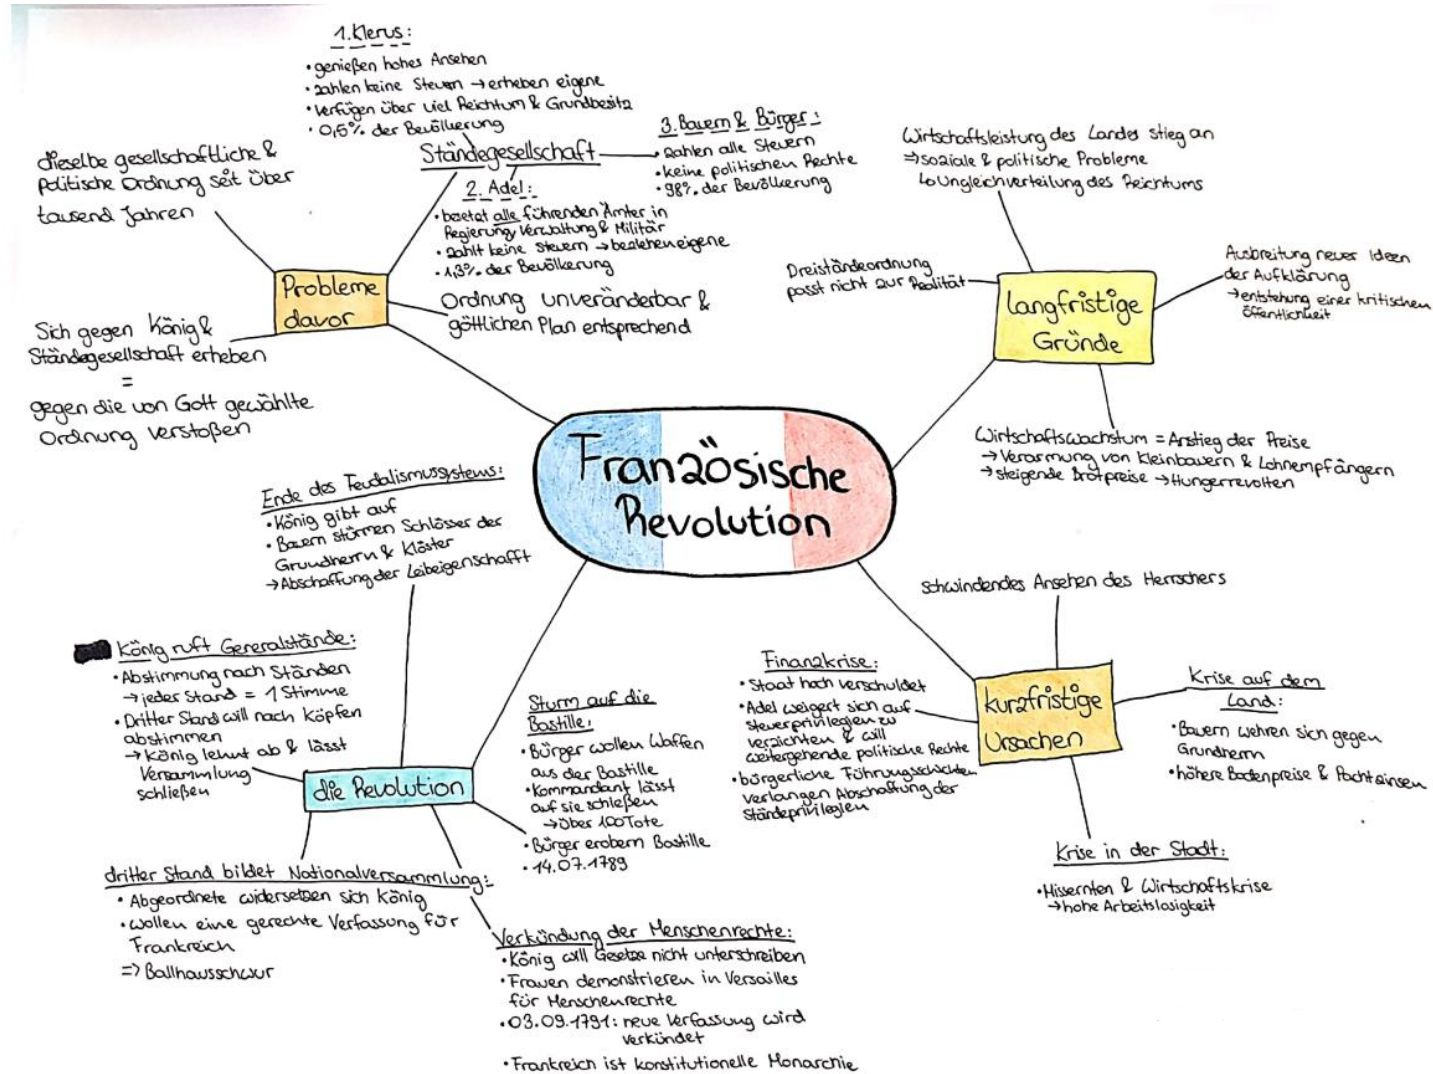 Französische
Revolution
Probleme
davor
dieselbe gesellschaftliche &
politische Ordnung seit über
tausend Jahren
Ständegesellschaft
1. Klerus:
• genießen hohes Ansehen
• zahlen keine Steuern → erheben eigene
• verfügen über viel Reichtum & Grundbesitz
• 0,5% der Bevölkerung
2. Adel:
• besetzt alle führenden Ämter in
Regierung, Verwaltung & Militär
• zahlt keine Steuern → beziehen eigene
• 1,3% der Bevölkerung
3. Bauern & Bürger:
• zahlen alle Steuern
• keine politischen Rechte
• 98% der Bevölkerung
Ordnung unveränderbar &
göttlichen Plan entsprechend
Sich gegen König &
Ständegesellschaft erheben
=
gegen die von Gott gewählte
Ordnung verstoßen
langfristige
Gründe
Wirtschaftsleistung des Landes stieg an
⇒ soziale & politische Probleme
↳ Ungleichverteilung des Reichtums
Dreiständeordnung
passt nicht zur Realität
Ausbreitung neuer Ideen
der Aufklärung
→ entstehung einer kritischen
Öffentlichkeit
Wirtschaftswachstum = Anstieg der Preise
→ Verarmung von Kleinbauern & Lohnempfängern
→ steigende Brotpreise → Hungerrevolten
kurzfristige
Ursachen
schwindendes Ansehen des Herrschers
Finanzkrise:
• Staat hoch verschuldet
• Adel weigert sich auf
steuerprivilegien zu
verzichten & will
weitergehende politische Rechte
• bürgerliche Führungsschichten
verlangen Abschaffung der
Ständeprivilegien
Krise auf dem
Land:
• Bauern wehren sich gegen
Grundherrn
• höhere Bodenpreise & Pachtzinsen
Krise in der Stadt:
• Missernten & Wirtschaftskrise
→ hohe Arbeitslosigkeit
die Revolution
Ende des Feudalismussystems:
• König gibt auf
• Bauern stürmen Schlösser der
Grundherrn & Klöster
→ Abschaffung der Leibeigenschafft
König ruft Generalstände:
• Abstimmung nach Ständen
→ jeder Stand = 1 Stimme
• Dritter Stand will nach Köpfen
abstimmen
→ König lehnt ab & lässt
Versammlung
schließen
dritter Stand bildet Nationalversammlung:
• Abgeordnete widersetzen sich König
• wollen eine gerechte Verfassung für
Frankreich
=> Ballhausschwur
Sturm auf die
Bastille:
• Bürger wollen Waffen
aus der Bastille
• Kommandant lässt
auf sie schießen
→ über 100 Tote
• Bürger erobern Bastille
• 14.07.1789
Verkündung der Menschenrechte:
• König will Gesetze nicht unterschreiben
• Frauen demonstrieren in Versailles
für Menschenrechte
• 03.09.1791: neue Verfassung wird
verkündet
• Frankreich ist konstitutionelle Monarchie